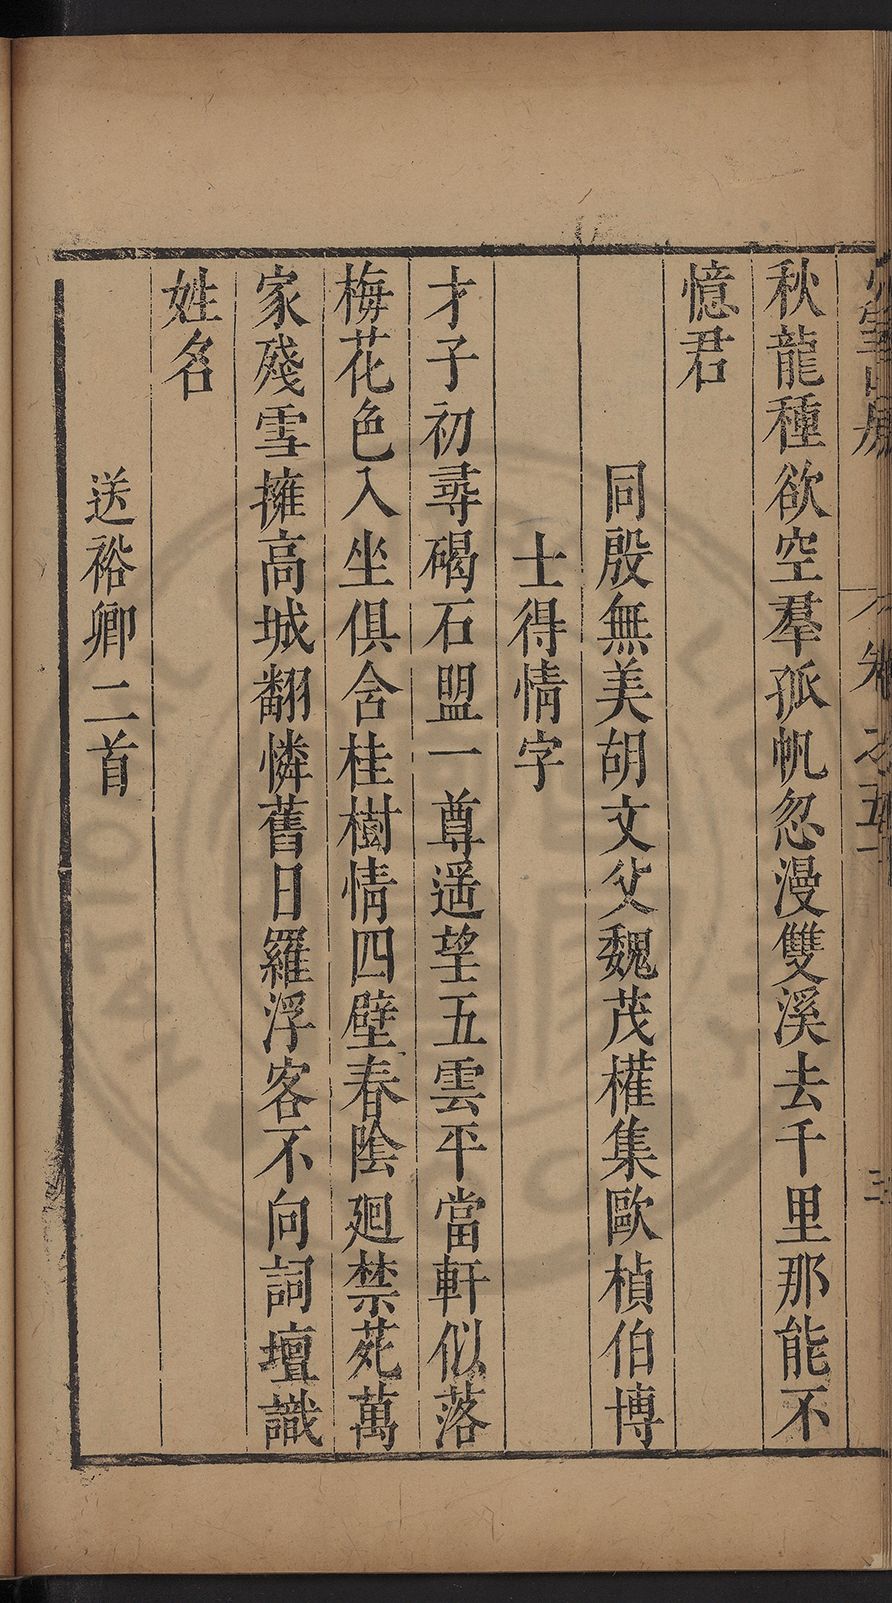 秋龍種欲空羣孤帆忽漫雙溪去千里那能不
憶君
同殷無美胡文父魏茂權集歐楨伯博
士得情字
才子初尋碣石盟一尊遥望五雲平當軒似落
梅花色入坐俱含桂樹情四壁春陰廻禁苑萬
家殘雪擁高城翻憐舊日羅浮客不向詞壇識
姓名
送裕卿二首